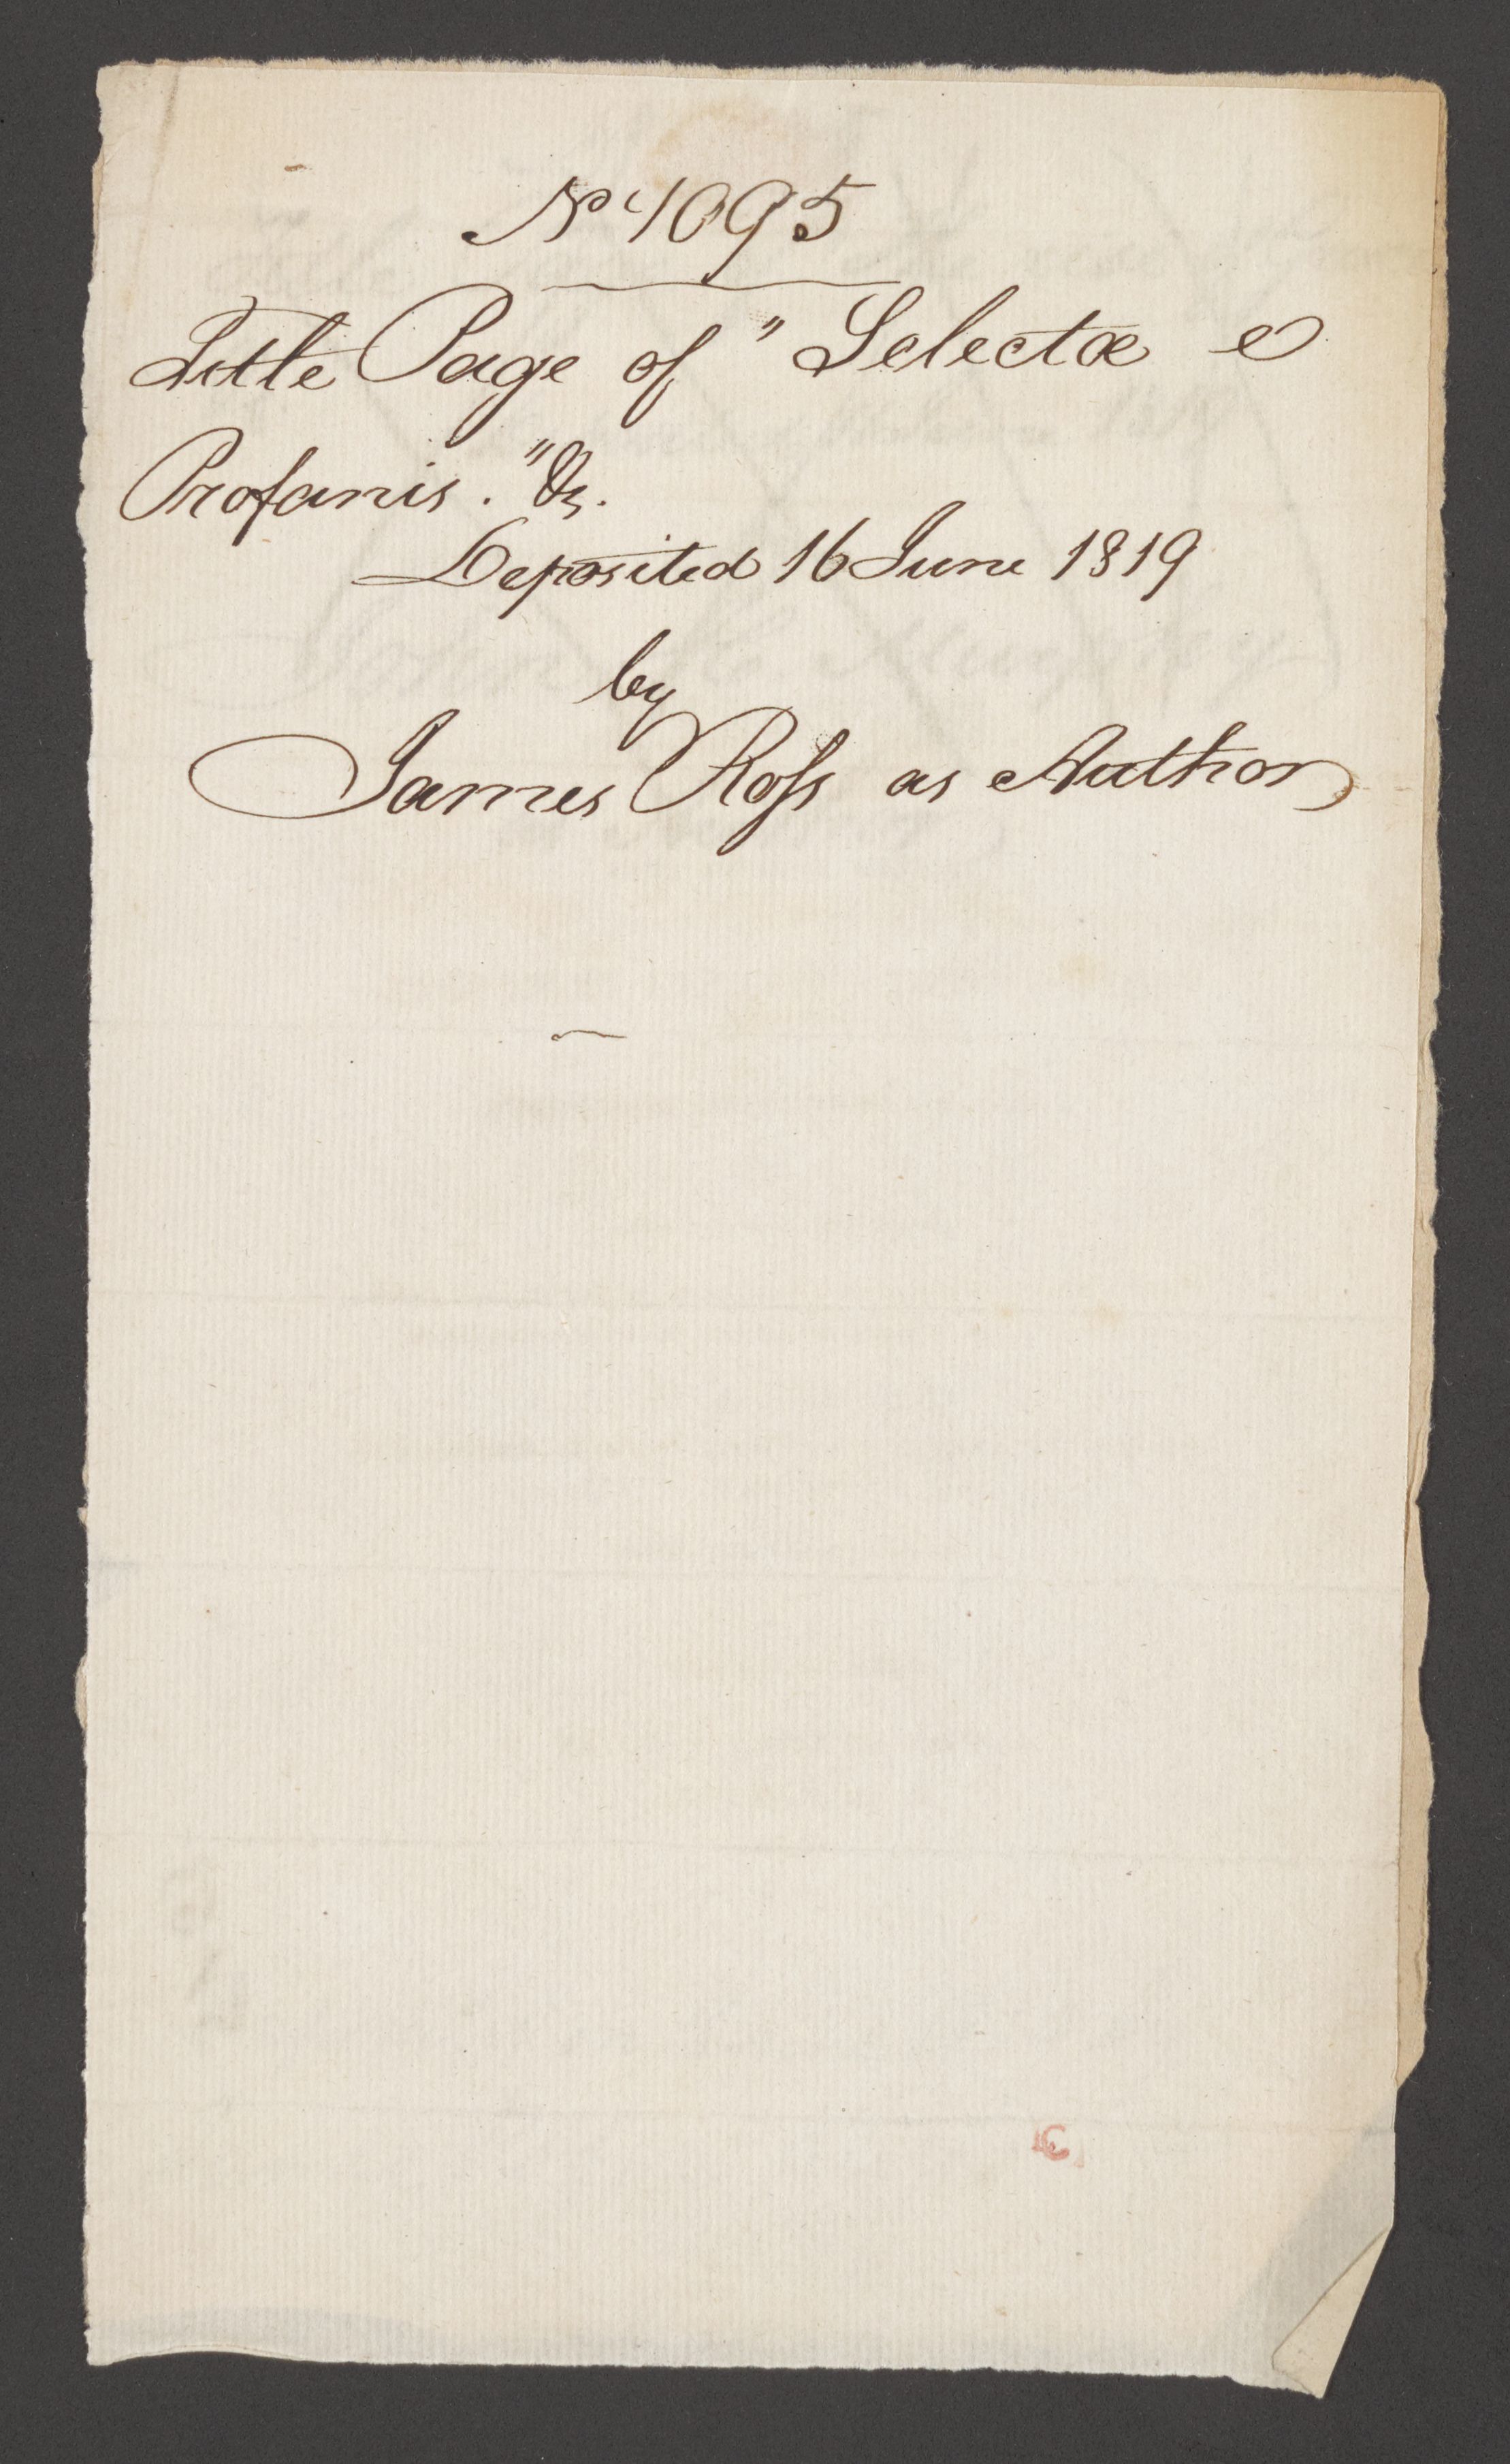 No 1095
Title Page of "Selectæ e
Profanis." &c.
Deposited 16 June 1819
by
James Ross as Author